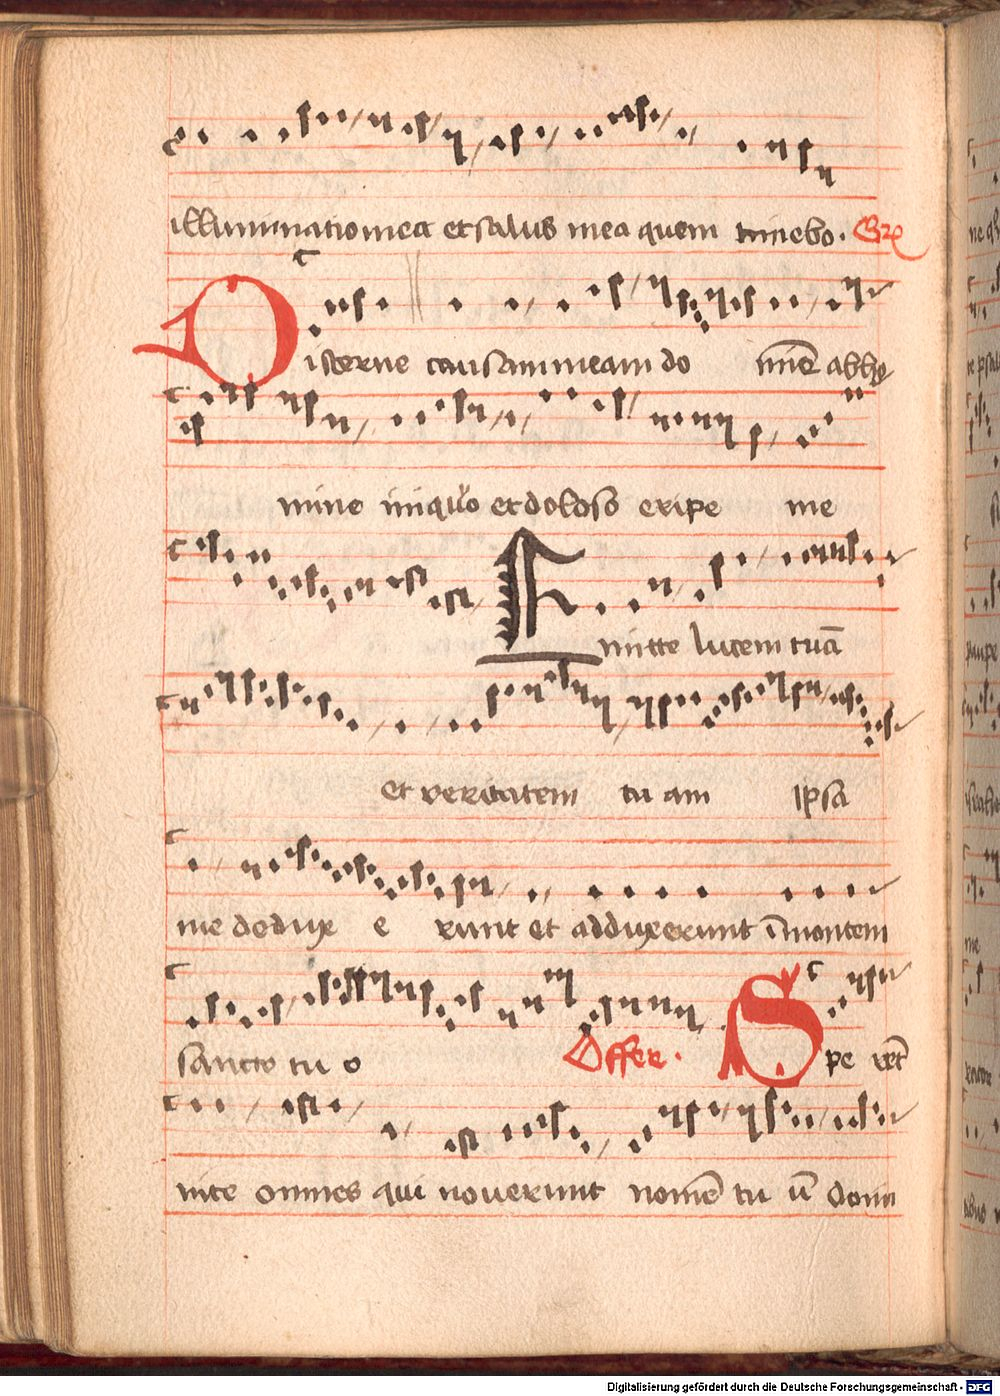 illuminatio mea et salus mea quem timebo. Gr
Discerne causam meam do mīe ab ho
mine iniquo et doloso eripe me
Emitte lucem tuā
et veritatem tu am ipsa
me dedux e runt et adduxerunt ī montem
sancto tu o Offer. Spe rēt
nite omnes qui noverunt nomē tu ū domi
Digitalisierung gefördert durch die Deutsche Forschungsgemeinschaft - DFG